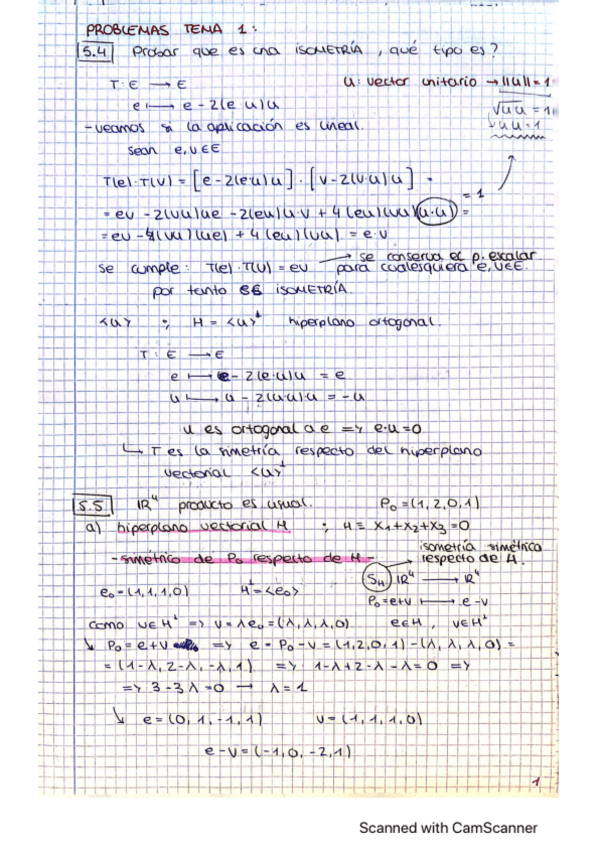 PROBLEMAS TEMA 1:
5.4 Probar que es una ISOMETRÍA, qué tipo es?
T: E → E
u: vector unitario → ||u|| = 1
e ↦ e - 2(e·u)u
√u·u = 1
↳ u·u = 1
- veamos si la aplicación es lineal.
sean e, v ∈ E
T(e)·T(v) = [e - 2(e·u)u] · [v - 2(v·u)u] =
= ev - 2(vu)ue - 2(eu)u·v + 4(eu)(vu)(u·u) =
= 1
= ev - 4(vu)(ue) + 4(eu)(vu) = e·v
se cumple: T(e)·T(v) = ev → se conserva el p. escalar
para cualesquiera e, v ∈ E.
por tanto es ISOMETRÍA.
<u> ; H = <u>⊥ hiperplano ortogonal.
T: E → E
e ↦ e - 2(e·u)u = e
u ↦ u - 2(u·u)u = -u
u es ortogonal a e ⇒ e·u = 0
↳ T es la simetría respecto del hiperplano
vectorial <u>⊥
5.5 IR⁴ producto es usual. P₀ = (1, 2, 0, 1)
a) hiperplano vectorial H ; H ≡ x₁ + x₂ + x₃ = 0
isometría simétrica
respecto de H.
- simétrico de P₀ respecto de H -
S_H IR⁴ → IR⁴
e₀ = (1, 1, 1, 0) H⊥ = <e₀>
P₀ = e + v ↦ e - v
como v ∈ H⊥ ⇒ v = λe₀ = (λ, λ, λ, 0) e ∈ H, v ∈ H⊥
↳ P₀ = e + v ⇒ e = P₀ - v = (1, 2, 0, 1) - (λ, λ, λ, 0) =
= (1-λ, 2-λ, -λ, 1) ⇒ 1-λ+2-λ-λ = 0 ⇒
⇒ 3 - 3λ = 0 → λ = 1
↳ e = (0, 1, -1, 1) v = (1, 1, 1, 0)
e - v = (-1, 0, -2, 1)
1
Scanned with CamScanner